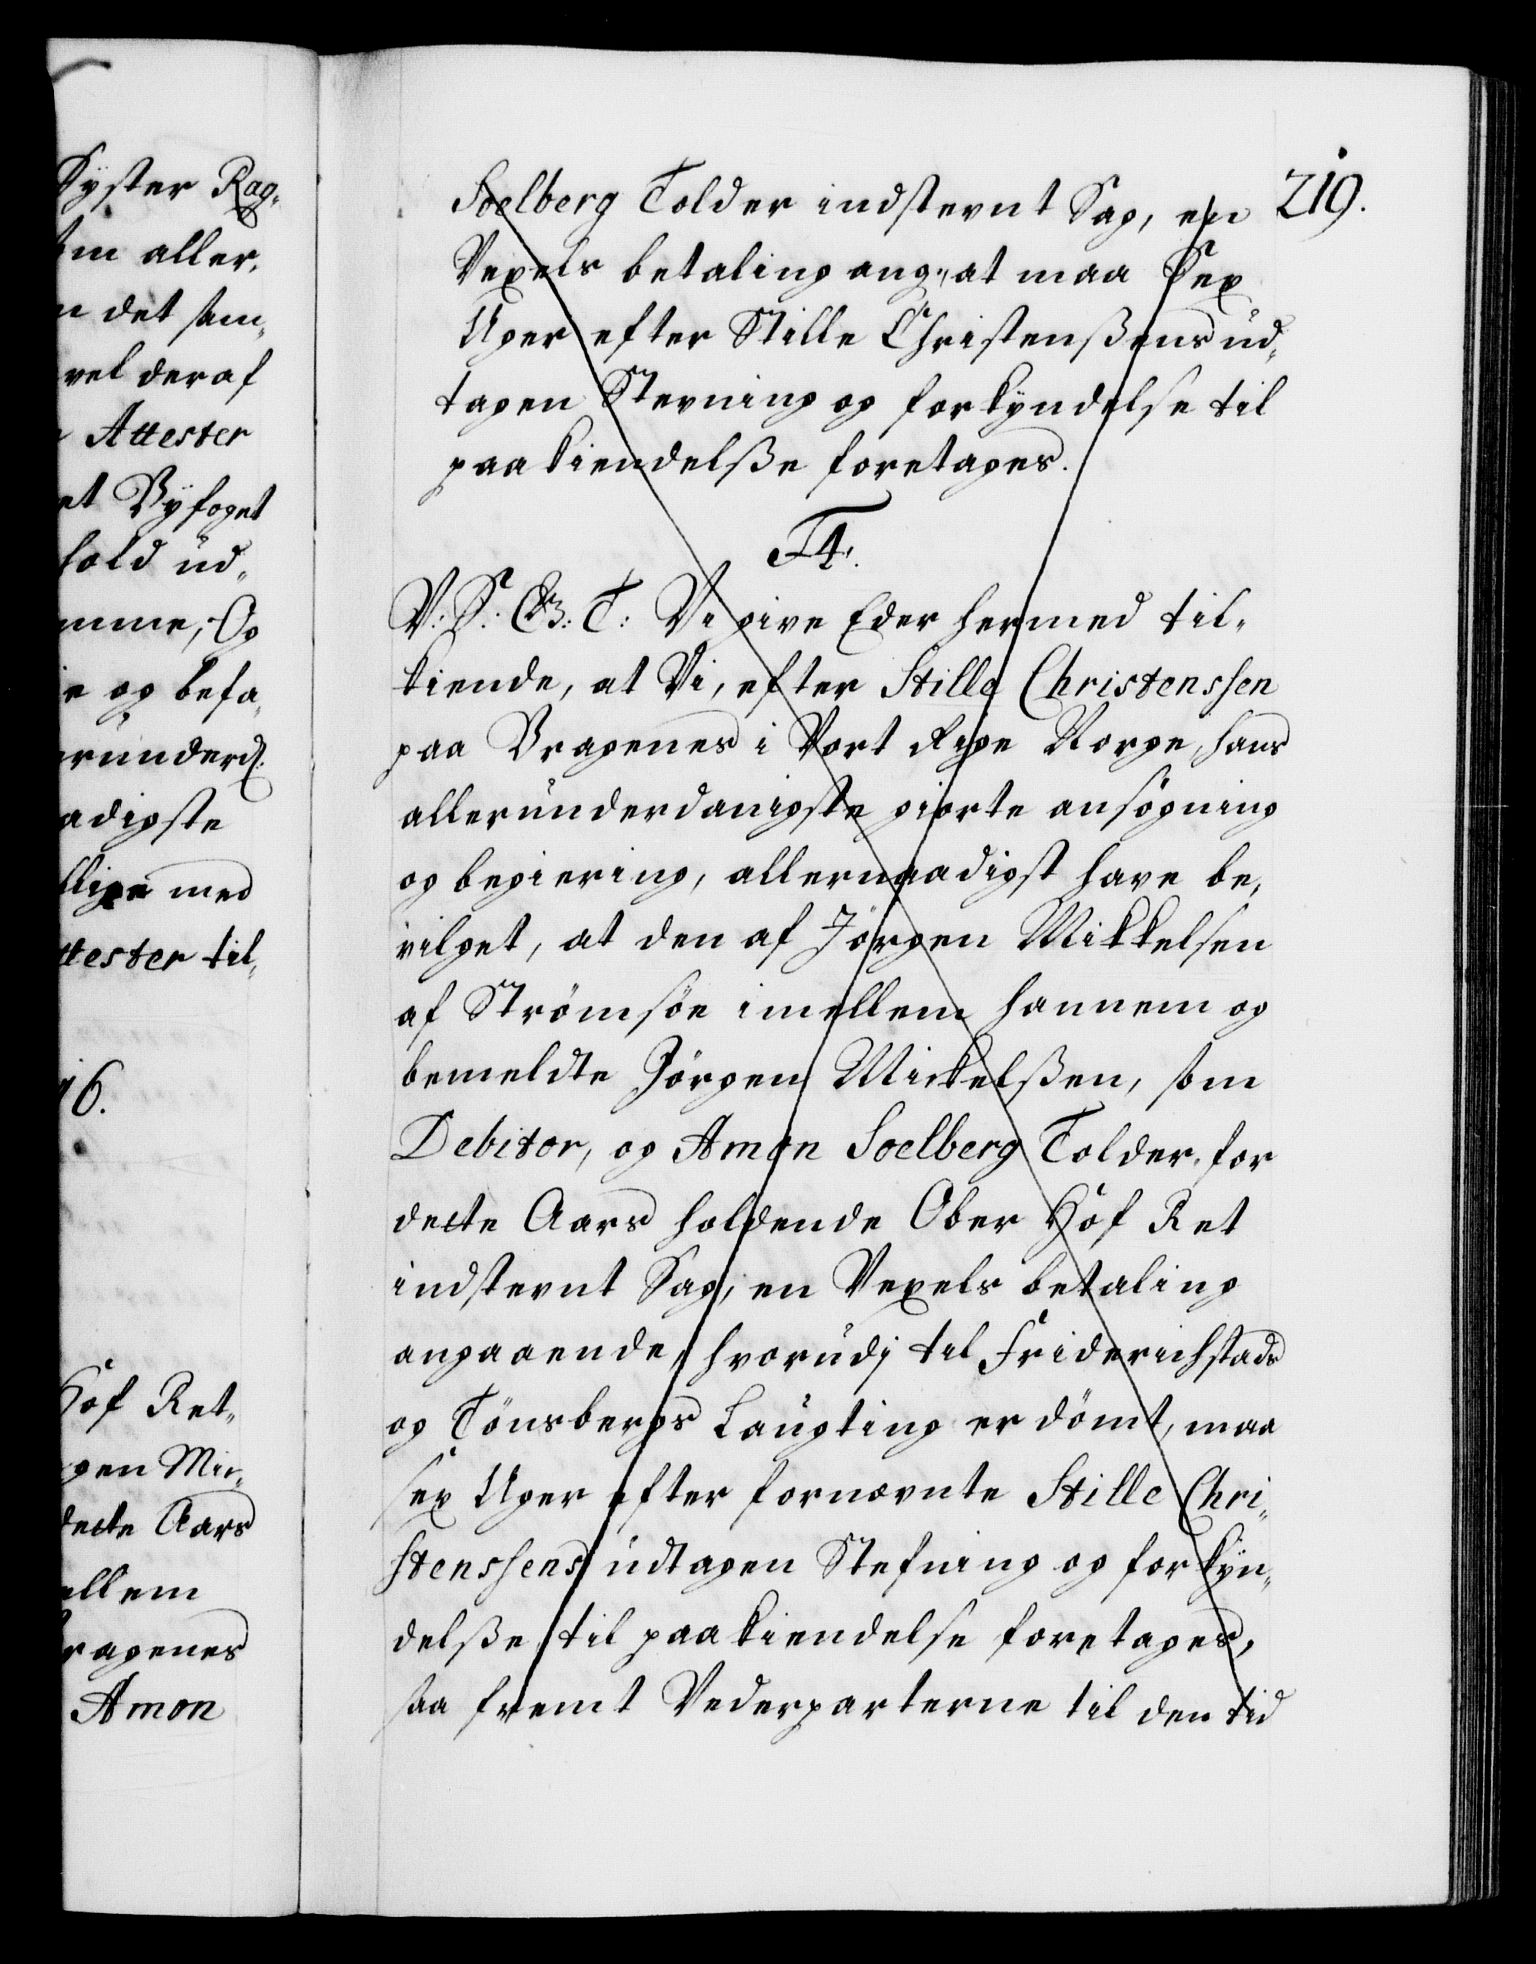 Syster Rag-
om aller,
n det sam-
vel deraf
Attester
et Byfoget
hold ud-
mme; Og
ie og befa-
erunderd.
adigste
llige med
ttester til-
16.
Hof Ret-
gen Mic-
dette Aars
ellem
Bragenes
Amon
219.
Soelberg Tolder indstevnt Sag, en
Vexels betaling ang: at maa Sex
Uger efter Stille Christenßens ud-
tagen Stevning og forkyndelse til
paakiendelße foretages.
F4.
V: S: G: T: Vi give Eder hermed til-
kiende, at Vi, efter Stille Christenssen
paa Bragenes i Vort Rige Norge, hans
allerunderdanigste giorte ansøgning
og begiering, allernaadigst have be-
vilget, at den af Jørgen Mikkelsen
af Strømsøe imellem hannem og
bemeldte Jørgen Mickelßen, som
Debitor, og Amon Soelberg Tolder, for
dette Aars holdende Ober Hof Ret
indstevnt Sag, en Vexels betaling
angaaende, hvorudj til Friderichstads
og Tønsbergs Laugting er dømt, maa
sex Uger efter fornævnte Stille Chri-
stenssens udtagen Stefning og forkyn-
delße til paakiendelse foretages,
saa fremt Vederparterne til den tid